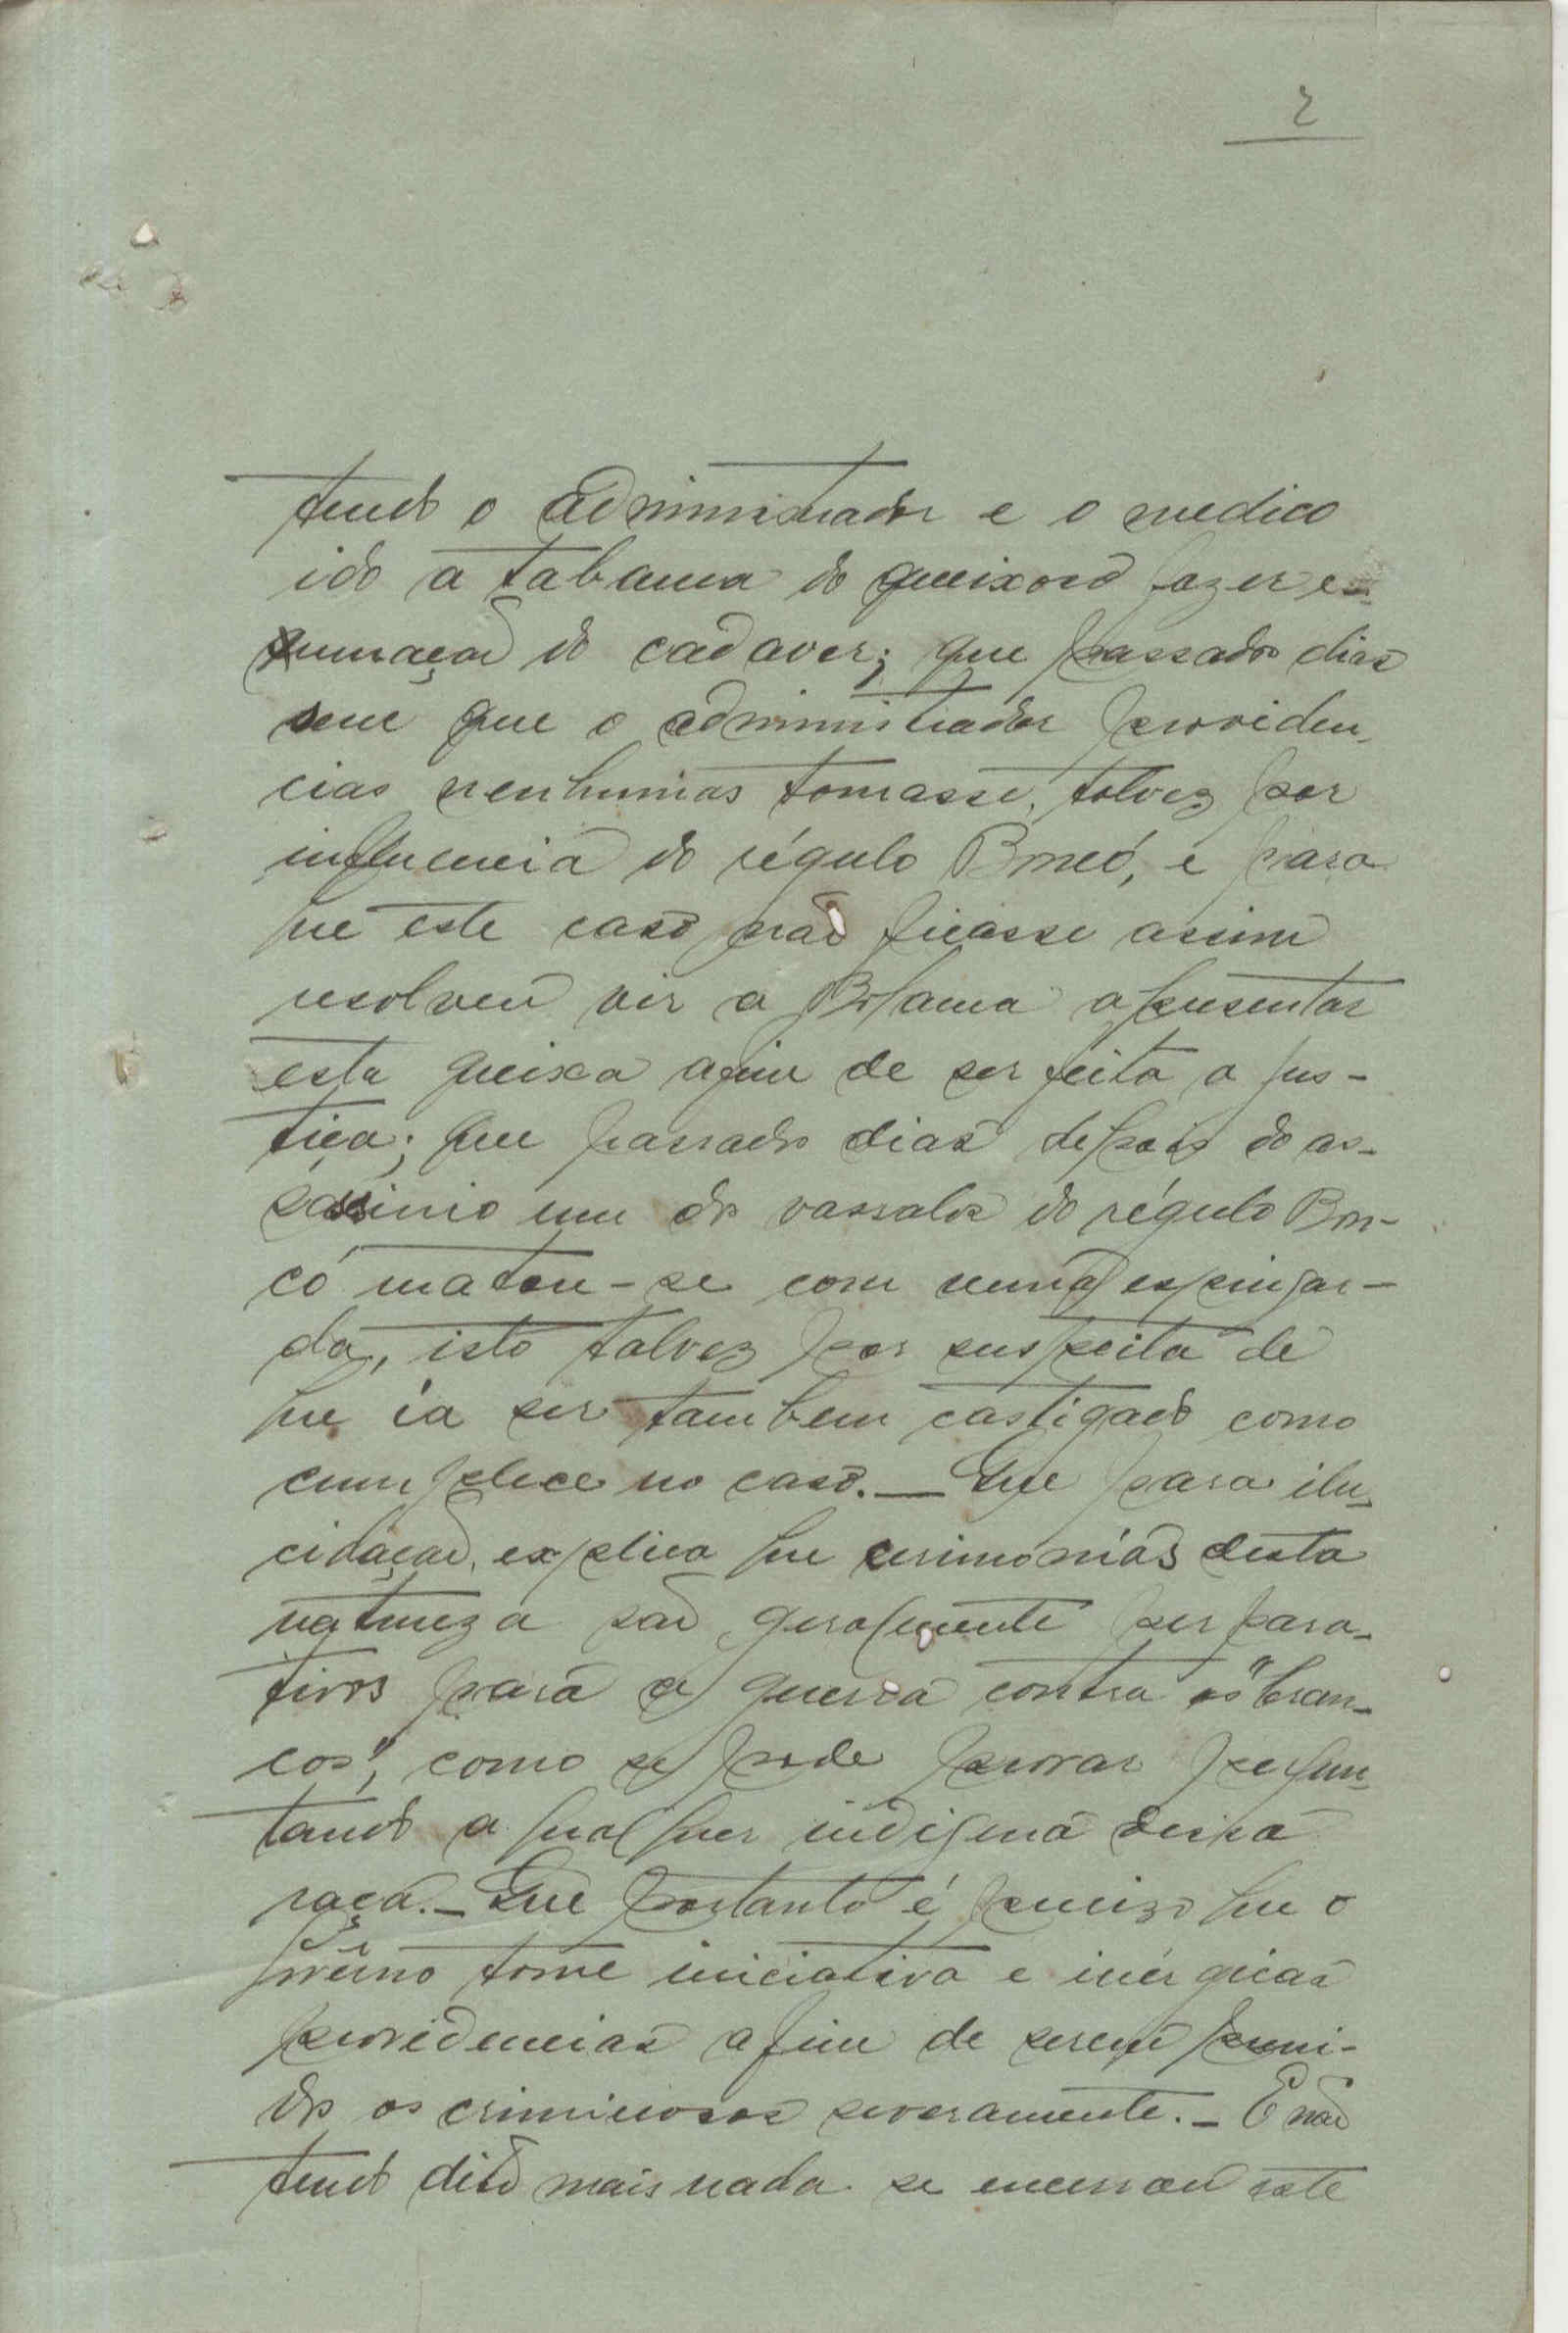 2
tendo o administrador e o medico
ido a tabanca do queixoso fazer e-
xumação do cadaver; que passados dias
sem que o administrador providen-
cias nenhumas tomasse, talvez por
influencia do régulo Boncó, e para
que este caso não ficasse assim
resolveu vir a Bolama apresentar
esta queixa afim de ser feita a jus-
tiça; que passados dias depois do as-
sassinio um dos vassalos do régulo Bon-
có matou-se com uma espingar-
da, isto talvez por suspeita de
que ia ser tambem castigado como
cumplice no caso.— Que para ilu-
cidação, explica que cerimónias desta
natureza são geralmente perpara-
tivos para a guerra contra os "bran-
cos", como se pode provar pergun-
tando a qualquer indigena dessa
raça.— Que portanto é preciso que o
govêrno tome iniciativa e inérgicas
providencias afim de serem puni-
dos os criminosos severamente.— E não
tendo dito mais nada se encerrou este